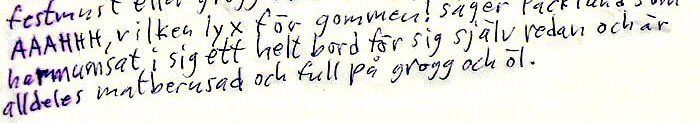 festmust eller grogg
AAAHHH, vilken lyx för gommen! säger Päcklund som
har mumsat i sig ett helt bord för sig själv redan och är
alldeles matberusad och full på grogg och öl.